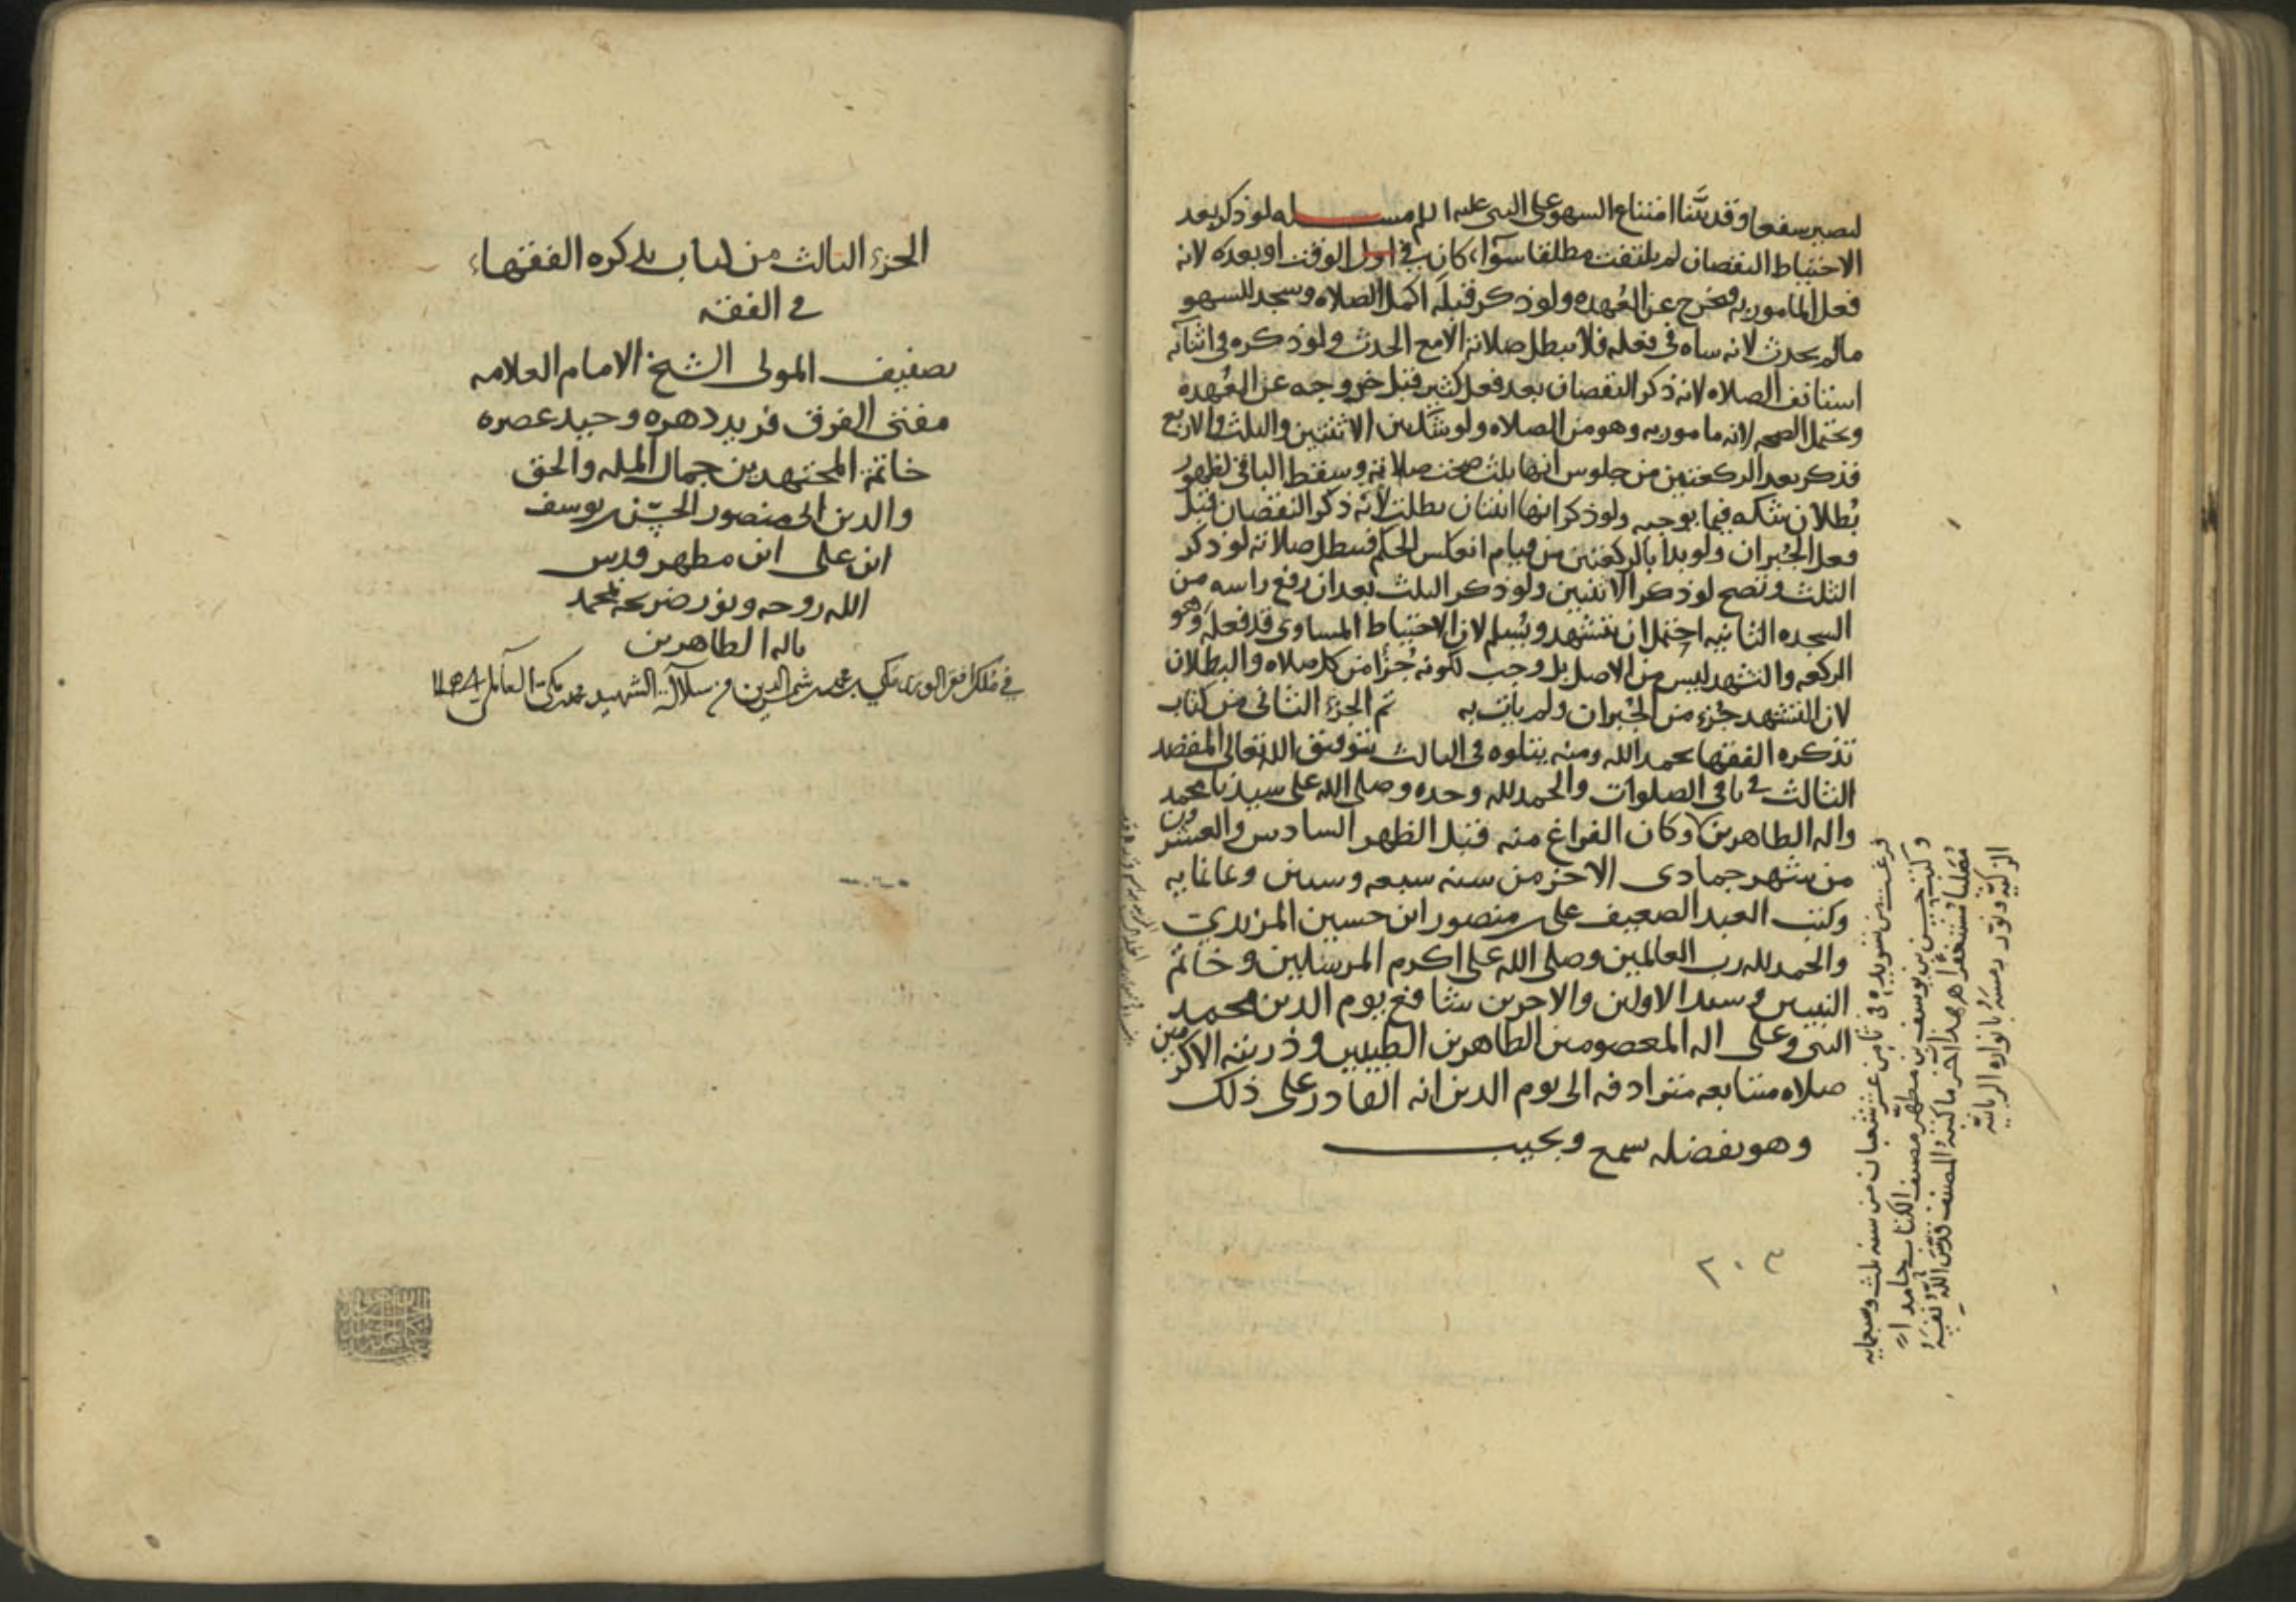 ليصير شفعا وقد بيّنا امتناع السهو على النبي عليه السلم مسله لو ذكر بعد
الاحتياط النقصان لم يلتفت مطلقا سوآء كان في اول الوقت او بعده لانه
فعل المامور به فخرج عن العُهده ولو ذكر قبله اكمل الصلاه وسجد للسهو
مالم يحدث لانه ساه في فعله فلا تبطل صلاته الا مع الحدث ولو ذكره في اثنآئه
استانف الصلاه لانه ذكر النقصان بعد فعل كثير قبل خروجه عن العُهده
ويحتمل الصحه لانه مامور به وهو من الصلاه ولو شك بين الاثنتين والثلث والاربع
فذكر بعد الركعتين من جلوس انها ثلث صحت صلاته وسقط الباقي لظهور
بُطلان شكه فيما يوجبه ولو ذكر انها اثنتان بطلت لانه ذكر النقصان قبل
فعل الجُبران ولو بدا بالركعتين من قيام انعكس الحكم فتبطل صلاته لو ذكر
الثلث وتصح لو ذكر الاثنتين ولو ذكر الثلث بعد ان رفع راسه من
السجده الثانيه احتمل ان يتشهد ويُسلم لان الاحتياط المساوي قد فعله وهو
الركعه والتشهد ليس من الاصل بل وجب لكونه جُزءا من كل صلاه والبطلان
لان التشهد جُزء من الجُبران ولم يات به تم الجزء الثاني من كتاب
تذكره الفقها بحمد الله ومنه يتلوه في الثالث بتوفيق الله تعالى المقصد
الثالث في باقي الصلوات والحمد لله وحده وصلى الله على سيدنا محمد
واله الطاهرين وكان الفراغ منه قبل الظهر السادس والعشرون
من شهر جمادى الاخر من سنه سبعه وستين وثمانمايه
وكتب العبد الضعيف على بن منصور ابن حسين المزيدي
والحمد لله رب العالمين وصلى الله على اكرم المرسلين وخاتم
النبيين وسيد الاولين والاخرين شافع يوم الدين محمد
النبي وعلى اله المعصومين الطاهرين الطيبين وذريته الاكرمين
صلاه متتابعه مترادفه الى يوم الدين انه القادر على ذلك
وهو بفضله سميع ويجيب
٢٠٣
فرغت من تسويده في ثامن عشر شعبان من سنه ثلث وسبعمايه
وكتب حسن بن يوسف بن مطهّر مصنف الكتاب حامدا لله
مصليا مستغفرًا هذا اخر ما كتبه المصنف قدّس الله نفسه
الزكيّه ونوّر رمسه بانواره الربانيّه
الجزء الثالث من كتاب تذكره الفقهاء
في الفقه
تصنيف المولى الشيخ الامام العلامه
مفتي الفرق فريد دهره وحيد عصره
خاتمة المجتهدين جمال المله والحق
والدين ابي منصور الحسن بن يوسف
ابن على ابن مطهر قدس
الله روحه ونور ضريحه بمحمد
واله الطاهرين
في ملك افقر الورى مكي بن محمد شمس الدين من سلالة الشهيد محمد بن مكي العاملي